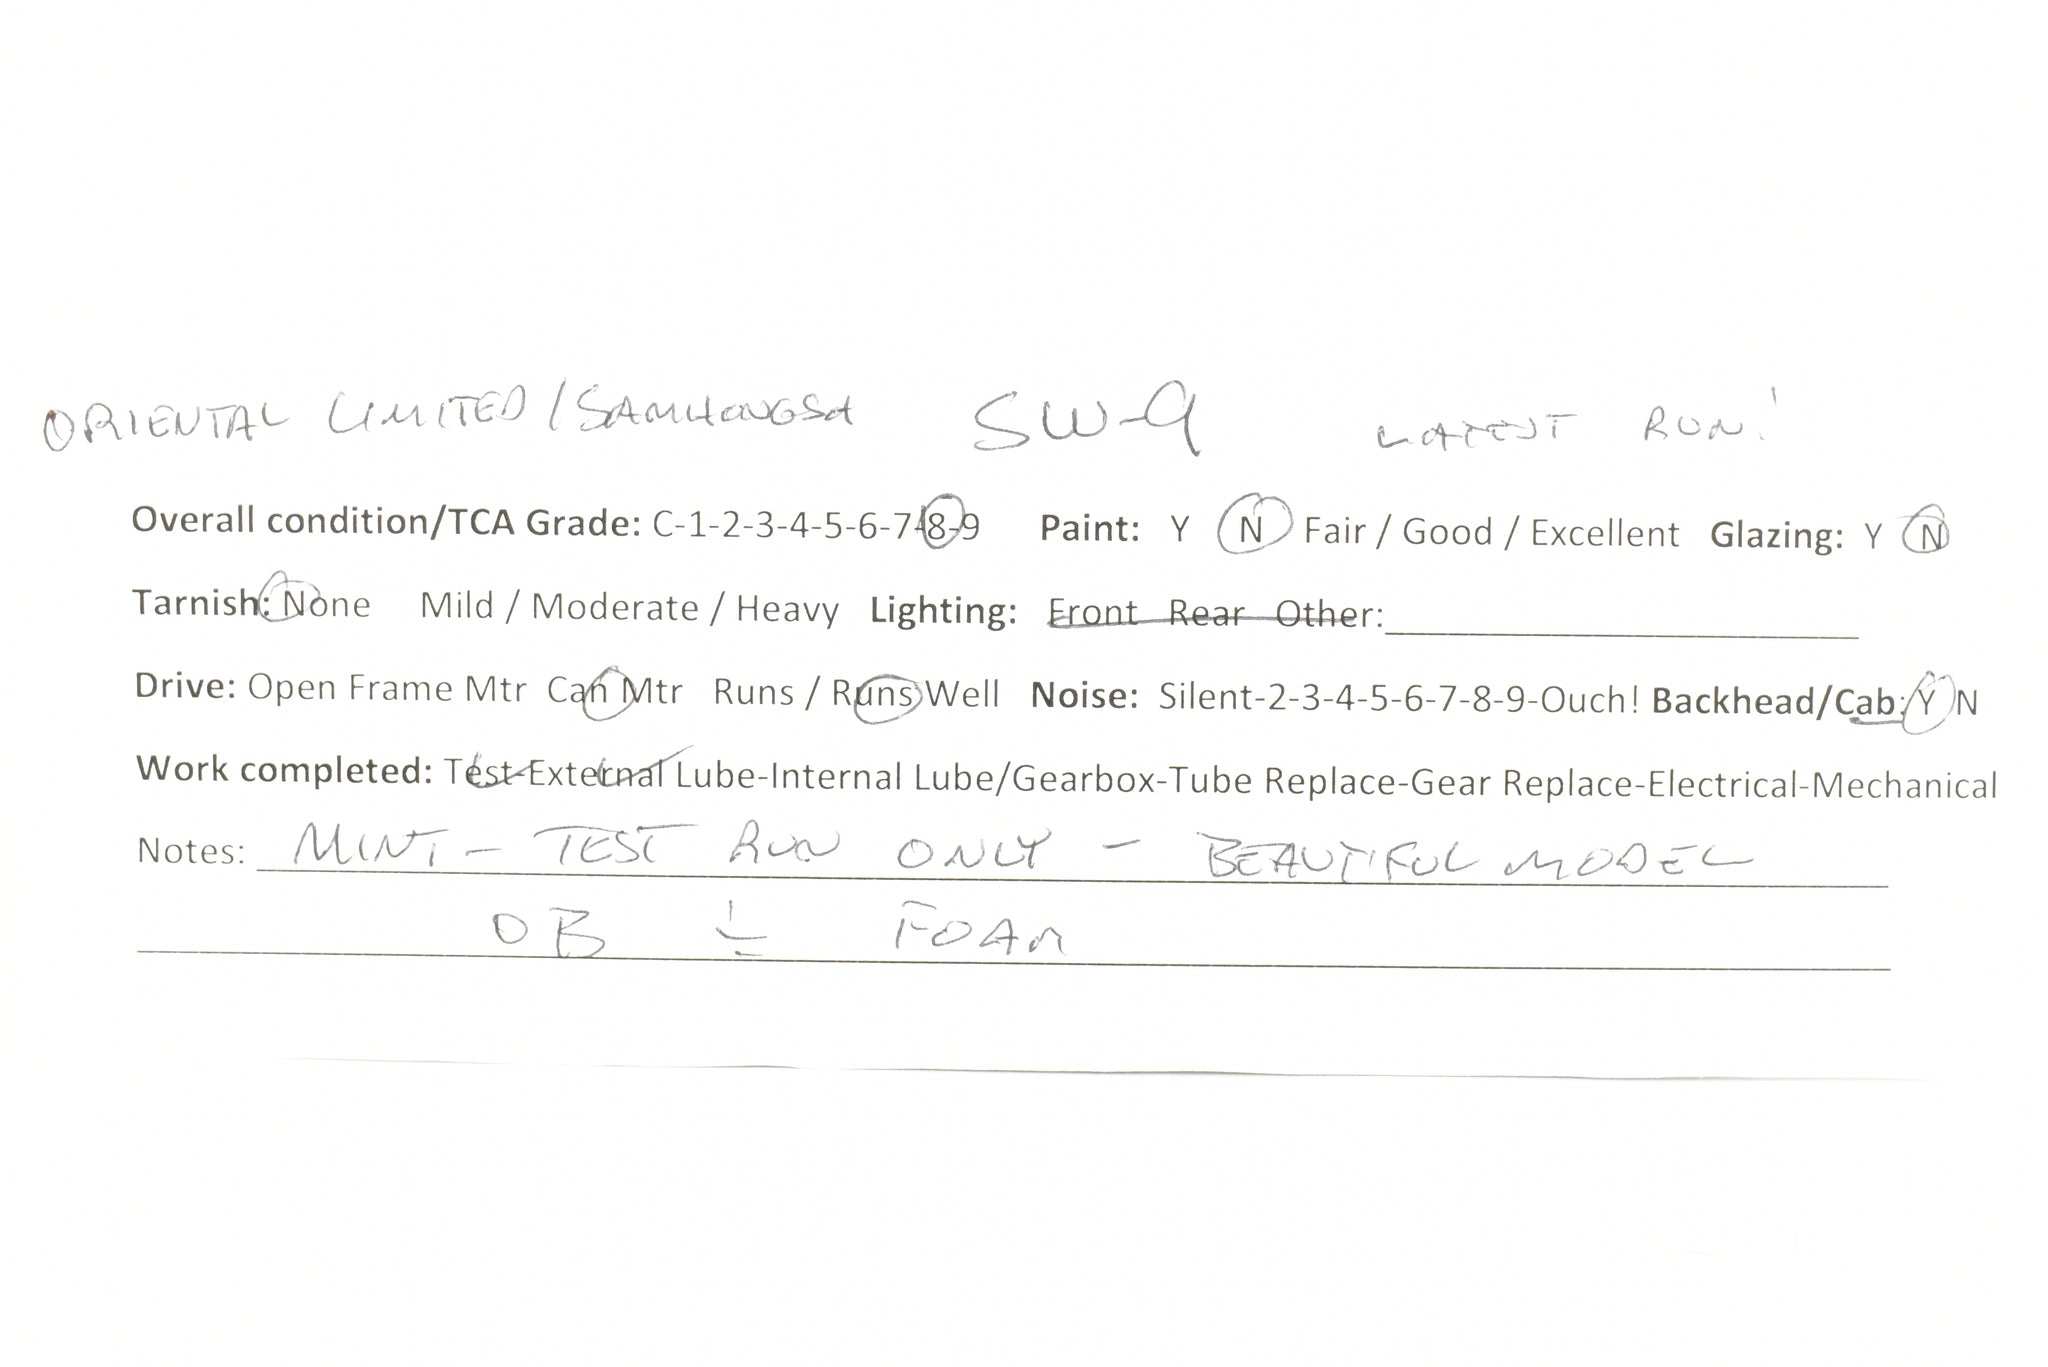 ORIENTAL LIMITED/SAMHONGSA SW-9 LATEST RUN!
Overall condition/TCA Grade: C-1-2-3-4-5-6-7-8-9 Paint: Y N Fair / Good / Excellent Glazing: Y N
Tarnish: None Mild / Moderate / Heavy Lighting: Front Rear Other:
Drive: Open Frame Mtr Can Mtr Runs / Runs Well Noise: Silent-2-3-4-5-6-7-8-9-Ouch! Backhead/Cab: Y N
Work completed: Test-External Lube-Internal Lube/Gearbox-Tube Replace-Gear Replace-Electrical-Mechanical
Notes: MINT - TEST RUN ONLY - BEAUTIFUL MODEL
OB FOAM